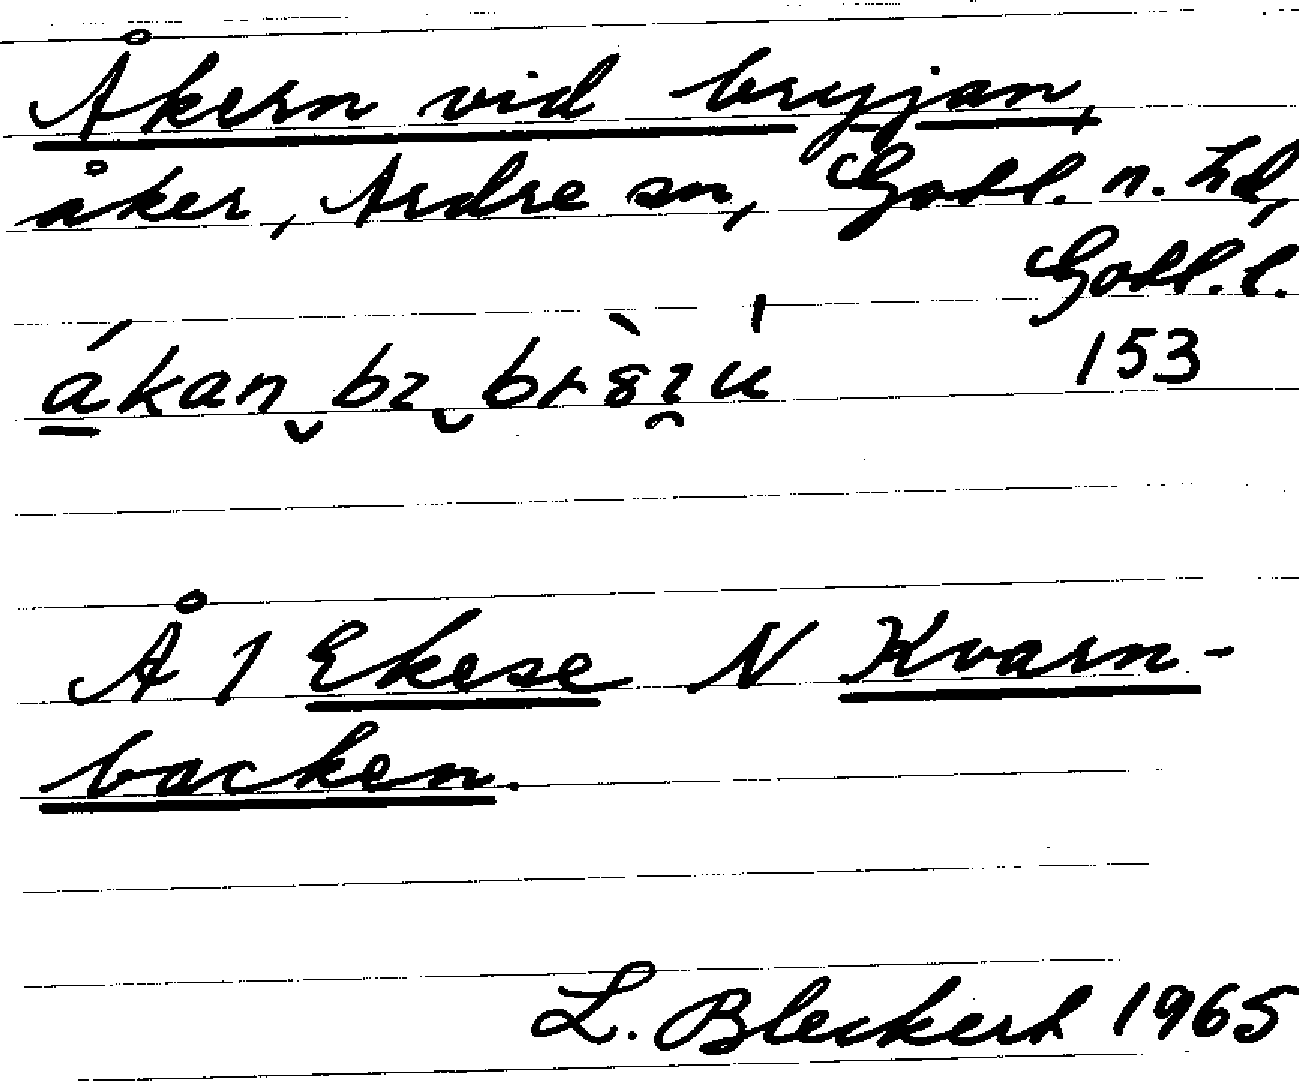 Åkern vid bryjan,
åker, Ardre sn, Gotl. n. hd,
Gotl. l.
153
Å 1 Ekese N Kvarn-
backen.
L. Bleckert 1965